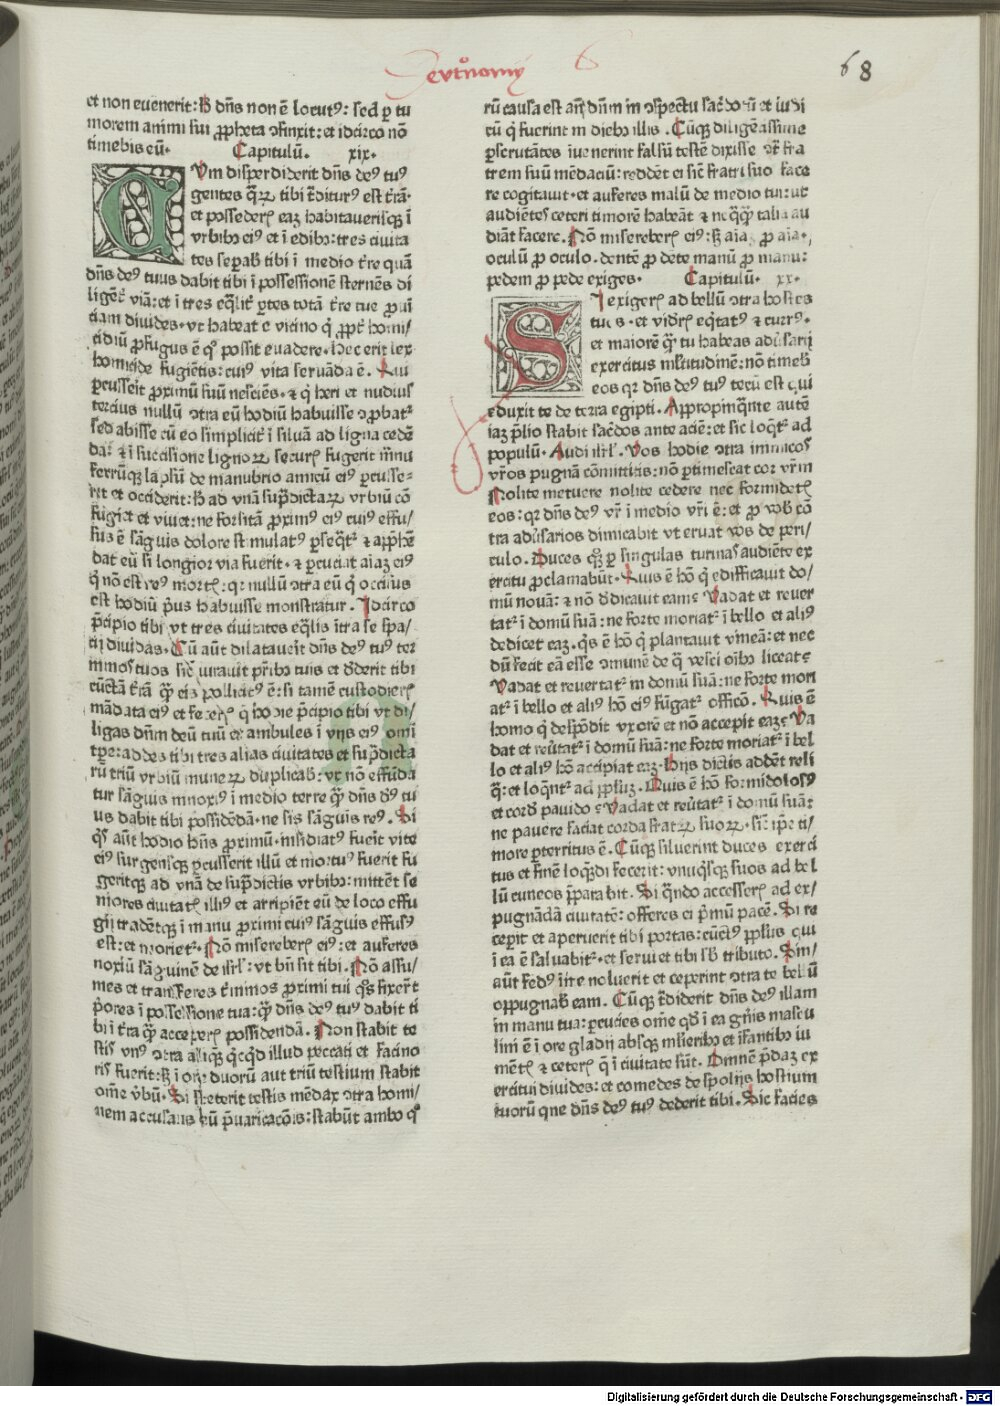 eutͦnomij 6
68
et non euenerit: hͦ dn̄s non ē locutꝰ: sed ꝑ tu
morem animi sui ꝓpheta ↄfinxit: et idcirco nō
timebis eū. Capitulū. xix.
CVm disperdiderit dn̄s deꝰ tuꝰ
gentes q̄ꝝ tibi t̄diturꝰ est t̄rā.
et possederis eaꝫ habitauerisqꝫ ī
vrbibꝫ eiꝰ et ī edibꝫ: tres ciuita
tes sepab̄ tibi ī medio t̄re quā
dn̄s deꝰ tuus dabit tibi ī possessionē sternēs di
ligēt̄ viā: et ī tres eq̄lit̄ ꝑtes totā t̄re tue ꝓuī
tiam diuides. vt habeat e vicino q̄ ꝓpt̄ homi/
cidiū ꝓfugus ē qͦ possit euadere. Hec erit lex
homicide fugiētis: cuiꝰ vita seruāda ē. Qui
ꝑcusserit ꝓximū suū nesciēs. ⁊ q̄ heri et nudius
tercius nullū ↄtra eū hodiū habuisse ↄprobatᷣ
sed abisse cū eo simplicit̄ ī siluā ad ligna cedē
da: ⁊ ī succisione lignoꝝ securꝭ fugerit manu
ferrūqꝫ lapsū de manubrio amicū eiꝰ ꝑcusse=
rit et occiderit: hͦ ad vnā sup̄dictaꝝ vrbiū cō
fugiet et viuet: ne forsitā ꝓximꝰ eiꝰ cuiꝰ effu/
sus ē sāguis dolore stimulatꝰ ꝑseq̄tᷣ ⁊ app̄hē
dat eū si longior via fuerit. ⁊ ꝑcutiat aīaꝫ eiꝰ
q̄ nō est reꝰ mortꝭ: qꝛ nullū ↄtra eū q̄ occisus
est hodiū p̄us habuisse monstratur. Idcirco
p̄cipio tibi vt tres ciuitates eq̄lis ītra se spa/
tij diuidas. Cū aūt dilatauerit dn̄s deꝰ tuꝰ ter
minos tuos sic̄ iurauit pr̄ibꝫ tuis et dederit tibi
cūctā t̄rā q̄ꝫ eis pollicitꝰ ē: si tamē custodierꝭ
mādata eiꝰ et fecerꝭ q̄ hodie p̄cipio tibi vt di/
ligas dn̄m deū tuū et ambules ī vijs eiꝰ omī
tp̄e: addes tibi tres alias ciuitates et sup̄dicta
rū triū vrbiū numeꝝ duplicab̄: vt nō effūda
tur sāguis innoxiꝰ ī medio terre q̄ꝫ dn̄s dsꝰ tu
us dabit tibi possidēdā. ne sis sāguīs reꝰ. Si
qͥs aūt hodio hn̄s ꝓximū. insidiatꝰ fuerit vite
eiꝰ surgensqꝫ ꝑcusserit illū et mortuꝰ fuerit fu
geritqꝫ ad vnā de sup̄dictis vrbibꝫ: mittēt se
niores ciuitatꝭ illiꝰ et arripiēt eū de loco effu
gij tradētqꝫ ī manu ꝓximi cuiꝰ sāguis effusꝰ
est: et morietᷣ. Nō misereberꝭ eiꝰ: et auferes
noxiū sāguinē de isrl̄: vt bn̄ sit tibi. Nō assu/
mes et transferes t̄minos ꝓximi tui qͦs fixer̄t
p̄ores ī possessione tua: q̄ꝫ dn̄s deꝰ tuꝰ dabit ti
bi ī t̄ra q̄ꝫ acceperꝭ possidendā. Non stabit te
stis vnꝰ ↄtra aliq̄ꝫ qͥcqͥd illud peccati et facino
ris fuerit: sꝫ ī ore duorū aut triū testium stabit
om̄e vb̄ū. Si steterit testis mēdax ↄtra homi/
nem accusans eū p̄uaricacōis: stabūt ambo qͦꝝ
rū causa est an̄ dn̄m in ↄspectu sac̄dotū et iudi
cū q̄ fuerint in diebꝫ illis. Cūqꝫ diligētissime
ꝑscrutātes iuenerint falsū testē dixisse ↄt̄ fra
trem suū mēdaciū: reddēt ei sic̄ fratri suo face
re cogitauit. et auferes malū de medio tui: vt
audiētes ceteri timorē habeāt ⁊ neq̄q̄ talia au
diāt facere. Nō misereberꝭ eiꝰ: sꝫ aīaꝫ ꝓ aīa.
oculū ꝓ oculo. dentē ꝓ dēte manū ꝓ manu:
pedem ꝓ pede exiges. Capitulū. xx.
SI exigerꝭ ad bellū ↄtra hostes
tuos. et vid̄rꝭ eq̄tatꝰ ⁊ currꝰ.
et maiorē q̄ꝫ tu habeas ad̄usarij
exercitus ml̄titudinē: nō timeb̄
eos qꝛ dn̄s deꝰ tuꝰ tecū est qui
eduxit te de terra egipti. Appropinq̄nte autē
iaꝫ p̄lio stabit sac̄dos ante aciē: et sic loq̄tᷣ ad
populū. Audi isrl̄. Vos hodie ↄtra inimicos
vr̄os pugnā cōmittitis: nō ꝑtimescat cor vr̄m
Nolite metuere nolite cedere nec formidetꝭ
eos: qꝛ dn̄s deꝰ vr̄ ī medio vr̄i ē: et ꝓ vob̄ cō
tra ad̄usarios dimicabit vt eruat vos de peri/
culo. Duces qͦꝫ ꝑ singulas turmas audiēte ex
ercitu ꝓclamabūt. Quis ē hō q̄ edifficauit do/
mū nouā: ⁊ nō dedicauit eam: Vadat et reuer
tatᷣ ī domū suā: ne forte moriatᷣ ī bello et aliꝰ
dedicet eaꝫ. qͥs ē hō q̄ plantauit vineā: et nec
dū fecit eā esse ↄmunē de q̄ vesci oībꝫ liceat:
Vadat et reuertatᷣ in domū suā: ne forte mori
atᷣ ī bello et aliꝰ hō eiꝰ fūgatᷣ officō. Quis ē
homo q̄ despōdit vxorē et nō accepit eaꝫ: Va
dat et reūtatᷣ ī domū suā: ne forte moriatᷣ ī bel
lo et aliꝰ hō accipiat eaꝫ. Hijs dictis addēt reli
q̄: et loq̄ntᷣ ad ppl̄uꝫ. Quis ē hō formidolosꝰ
et cord̄ pauido: Vadat et reūtatᷣ ī domū suā:
ne pauere faciat corda fratꝝ suoꝝ. sic̄ ip̄e ti/
more ꝑterritus ē. Cūqꝫ siluerint duces exerci
tus et finē loq̄ndi fecerit: vnꝰqͥsqꝫ suos ad bel
lū cuneos p̄parabit. Si qn̄do accesserꝭ ad ex/
pugnādā ciuitatē: offeres ei p̄mū pacē. Si re
ceperit et aperuerit tibi portas: cūctꝰ ppl̄us qui
ī ea ē saluabitᷣ. et seruiet tibi sb̄ tributo. Sin/
aūt fedꝰ īire noluerit et ceperint ↄtra te bellū
oppugnab̄ eam. Cūqꝫ t̄diderit dn̄s deꝰ illam
in manu tua: ꝑcuties om̄e qd̄ ī ea gn̄is mascu
lini ē ī ore gladij absqꝫ ml̄ieribꝫ et īfantibꝫ iu
mētꝭ ⁊ ceterꝭ q̄ ī ciuitate sūt. Omnē p̄daꝫ ex
ercitui diuides: et comedes de spolijs hostium
tuorū que dn̄s deꝰ tuꝰ dederit tibi. Sic facies
Digitalisierung gefördert durch die Deutsche Forschungsgemeinschaft - DFG